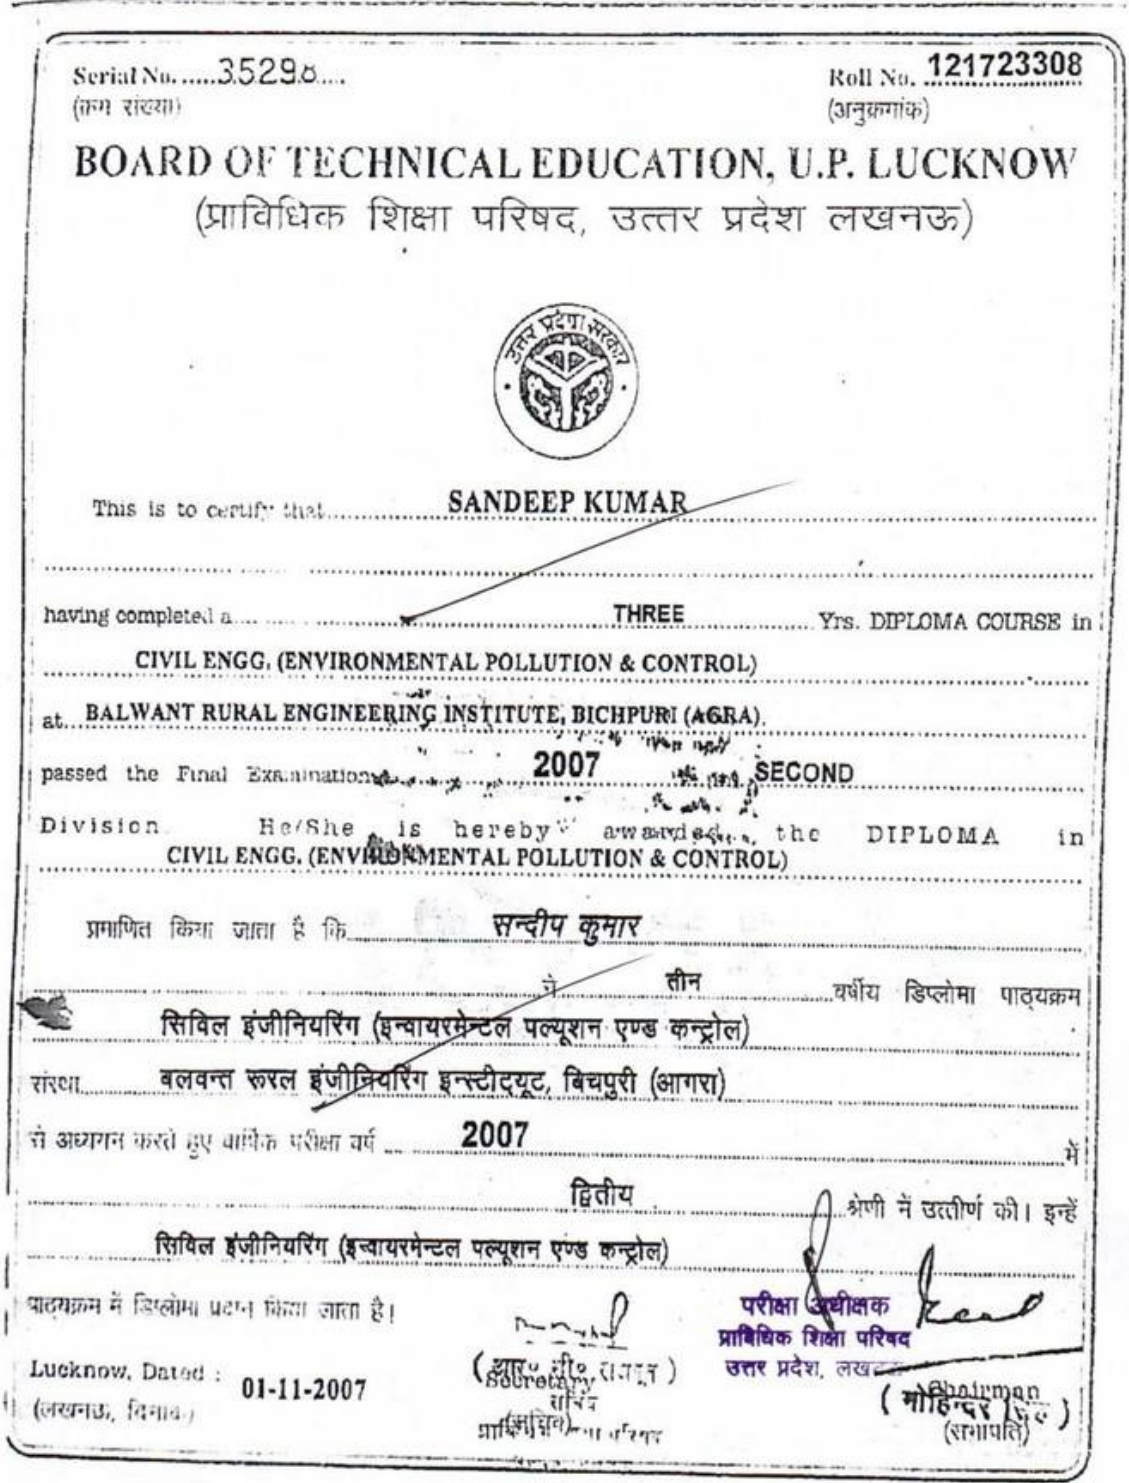 Serial No. ......35298....
Roll No. 121723308
(क्रम संख्या)
(अनुक्रमांक)
BOARD OF TECHNICAL EDUCATION, U.P. LUCKNOW
(प्राविधिक शिक्षा परिषद, उत्तर प्रदेश लखनऊ)
उत्तर प्रदेश सरकार
This is to certify that SANDEEP KUMAR
having completed a THREE Yrs. DIPLOMA COURSE in
CIVIL ENGG. (ENVIRONMENTAL POLLUTION & CONTROL)
at BALWANT RURAL ENGINEERING INSTITUTE, BICHPURI (AGRA).
passed the Final Examination 2007 SECOND
Division. He/She is hereby awarded the DIPLOMA in
CIVIL ENGG. (ENVIRONMENTAL POLLUTION & CONTROL)
प्रमाणित किया जाता है कि सन्दीप कुमार
ने तीन वर्षीय डिप्लोमा पाठ्यक्रम
सिविल इंजीनियरिंग (इन्वायरमेन्टल पल्यूशन एण्ड कन्ट्रोल)
संस्था बलवन्त रूरल इंजीनियरिंग इन्स्टीट्यूट, बिचपुरी (आगरा)
से अध्ययन करते हुए वार्षिक परीक्षा वर्ष 2007 में
द्वितीय श्रेणी में उत्तीर्ण की। इन्हें
सिविल इंजीनियरिंग (इन्वायरमेन्टल पल्यूशन एण्ड कन्ट्रोल)
पाठ्यक्रम में डिप्लोमा प्रदान किया जाता है।
परीक्षा अधीक्षक
प्राविधिक शिक्षा परिषद
उत्तर प्रदेश, लखनऊ
Lucknow, Dated : 01-11-2007
(लखनऊ, दिनांक)
Secretary
सचिव
(सचिव)
Chairman
(सभापति)